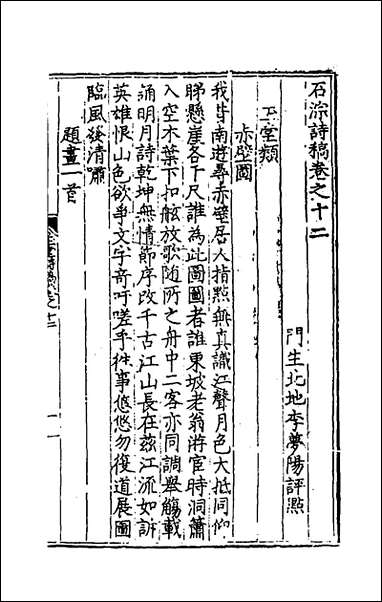 石淙詩稿卷之十二
門生北地李夢陽評點
玉堂類
赤壁圖
我昔南遊尋赤壁居人指點無真識江聲月色大抵同仰
睇懸崖各千尺誰為此圖圖者誰東坡老翁游宦時洞簫
入空木葉下扣舷放歌随所之舟中二客亦同調舉觴載
誦明月詩乾坤無情節序改千古江山長在兹江流如訴
英雄恨山色欲爭文字奇吁嗟乎徃事悠悠勿復道展圖
臨風發清嘯
題畫一首